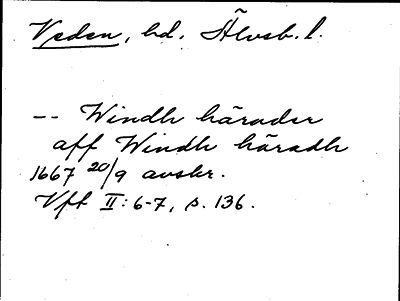 Veden, hd. Älvsb. l.
-- Windh härader
aff Windh häradh
1667 20/9 avskr.
Vft II: 6-7, s. 136.